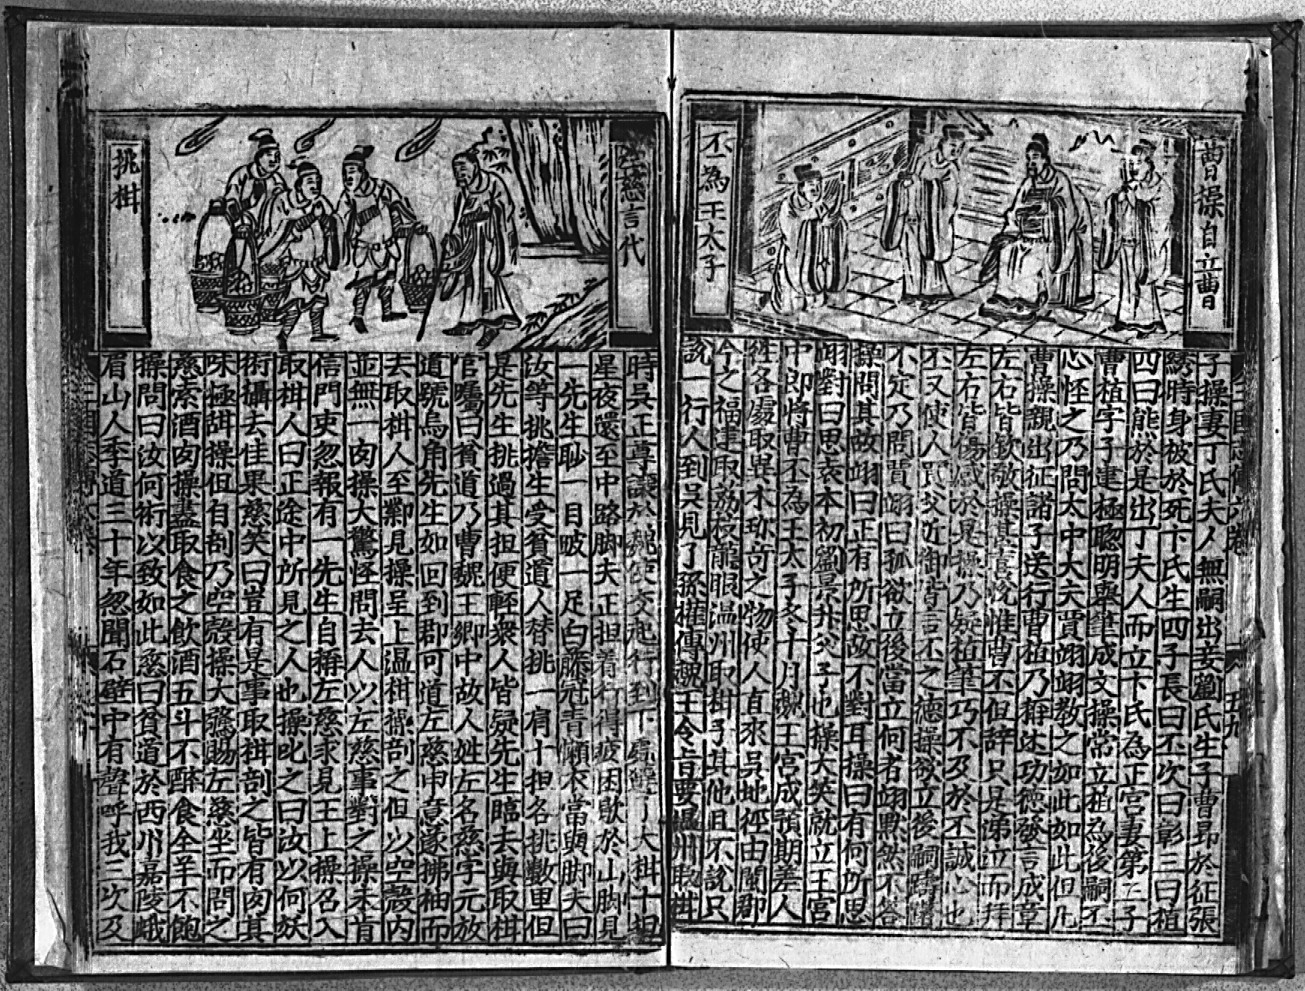 曹操自立曹
丕為王太子
子操妻丁氏夫人無嗣出妾劉氏生子曹昂於征張
綉時身被於死卞氏生四子長曰丕次曰彰三曰植
四曰熊於是出丁夫人而立卞氏為正宮妻第三子
曹植字子建極聰明舉筆成文操常立植為後嗣丕
心怪之乃問太中大夫賈翊翊教之如此如此但凡
曹操親出征諸子送行曹植乃稱述功德發言成章
左右皆欽敬操甚喜悅惟曹丕但辭只是涕立而拜
左右皆傷感於是操乃疑植筆巧不及於丕誠心也
丕又使人買父近御皆言丕之德操欲立後嗣躊躇
不定乃問賈翊曰孤欲立後當立何者翊默然不答
操問其故翊曰正有所思故不對耳操曰有何所思
翊對曰思袁本初劉景升父子也操大笑就立王宮
中郎將曹丕為王太子冬十月魏王宮成預期差人
徃各處取異木珍奇之物使人直來吳地徑由閩郡
今之福建取荔枝龍眼温州取柑子其他且不說只
說一行人到吳見了孫權傳魏王令旨要温州取柑
慈言代
挑柑
時吳正尊讓於魏使交起行到
大柑十担
星夜還至中路脚夫正担着行得疲困歇於山脚見
一先生眇一目跛一足白藤冠青懶衣當與脚夫曰
汝等挑擔生受貧道人替挑一肩十担各挑數里但
是先生挑過其担便輕衆人皆疑先生臨去與取柑
官囑曰貧道乃曹魏王卿中故人姓左名慈字元放
道號烏角先生如回到郡可道左慈申意遂拂袖而
去取柑人至鄴見操呈上温柑操剖之但以空殼內
並無一肉操大驚怪問去人以左慈事對之操未肯
信門吏忽報有一先生自稱左慈求見王上操召入
取柑人曰正途中所見之人也操叱之曰汝以何妖
術攝去佳果慈笑曰豈有是事取柑剖之皆有肉其
味極甜操但自剖乃空殼操大驚賜左慈坐而問之
慈索酒肉操盡取食之飲酒五斗不醉食全羊不飽
操問曰汝何術以致如此慈曰貧道於西川嘉陵峨
眉山人李道三十年忽聞石壁中有聲呼我三次及